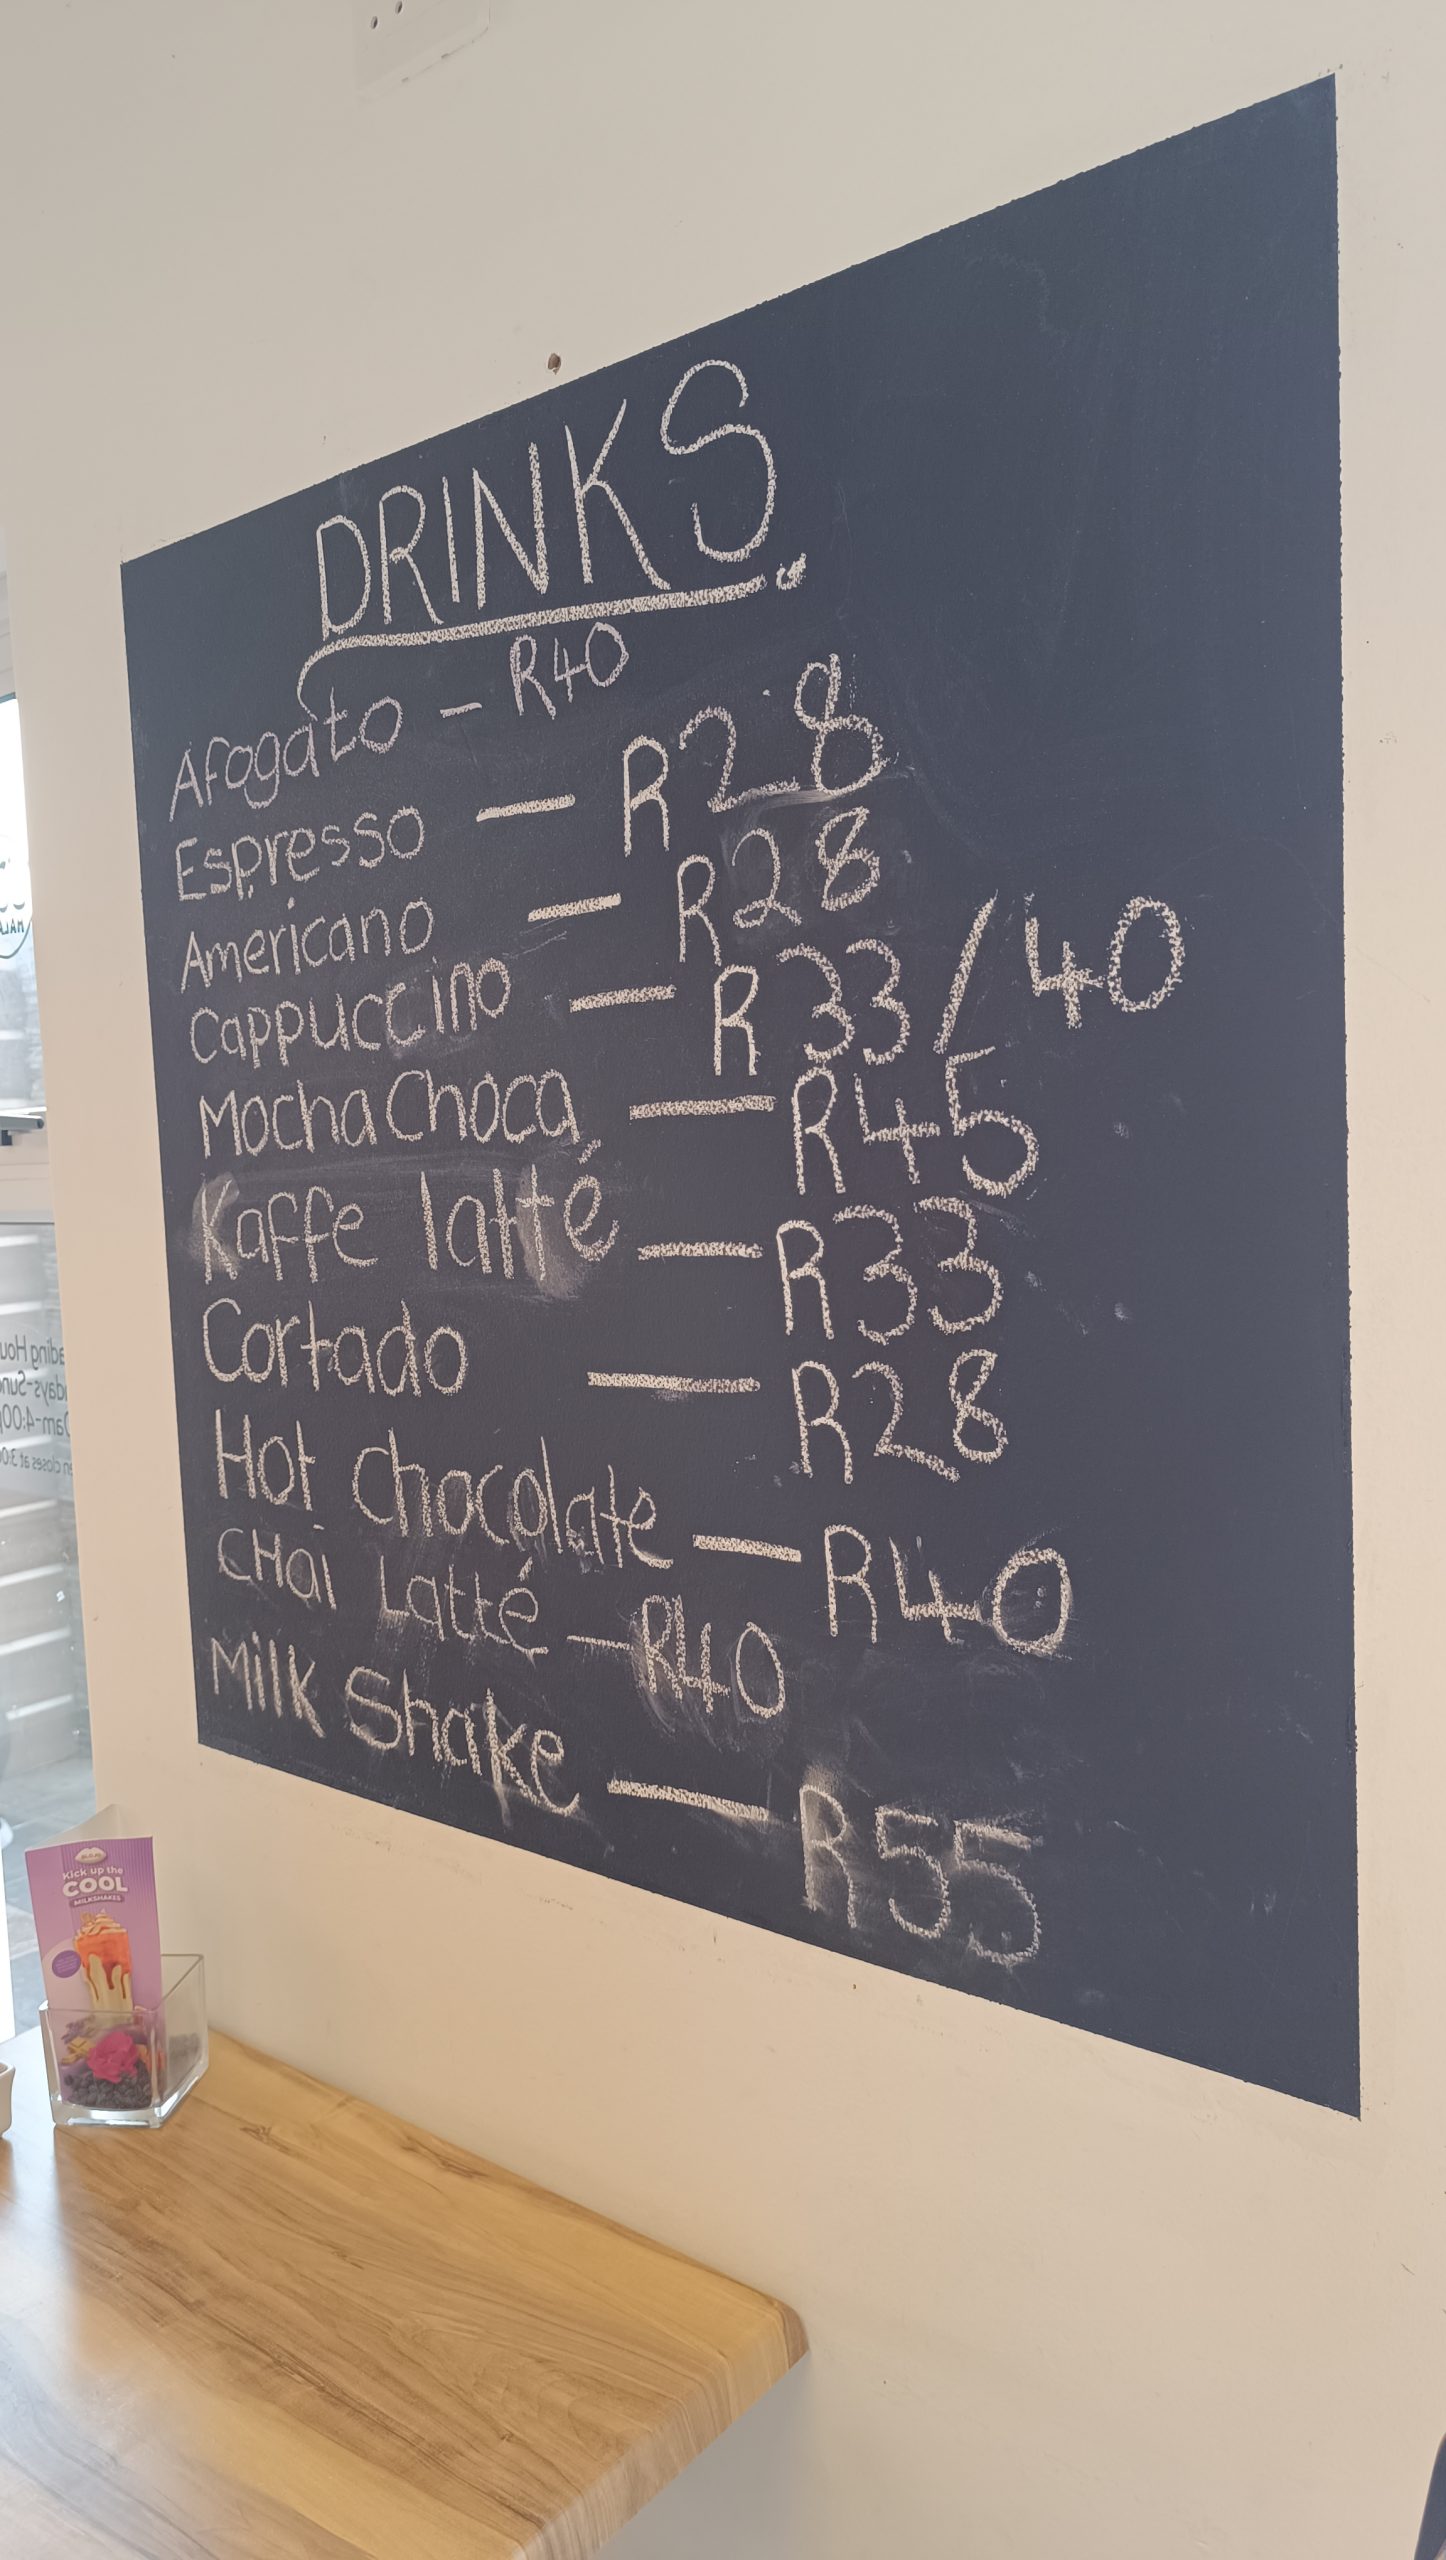 DRINKS
Afogato - R40
Espresso — R28
Americano — R28
Cappuccino — R33/40
MochaChoca — R45
Kaffe latté — R33
Cortado — R28
Hot chocolate — R40
CHai Latté — R40
Milk Shake — R55
Kick up the
COOL
MILKSHAKES